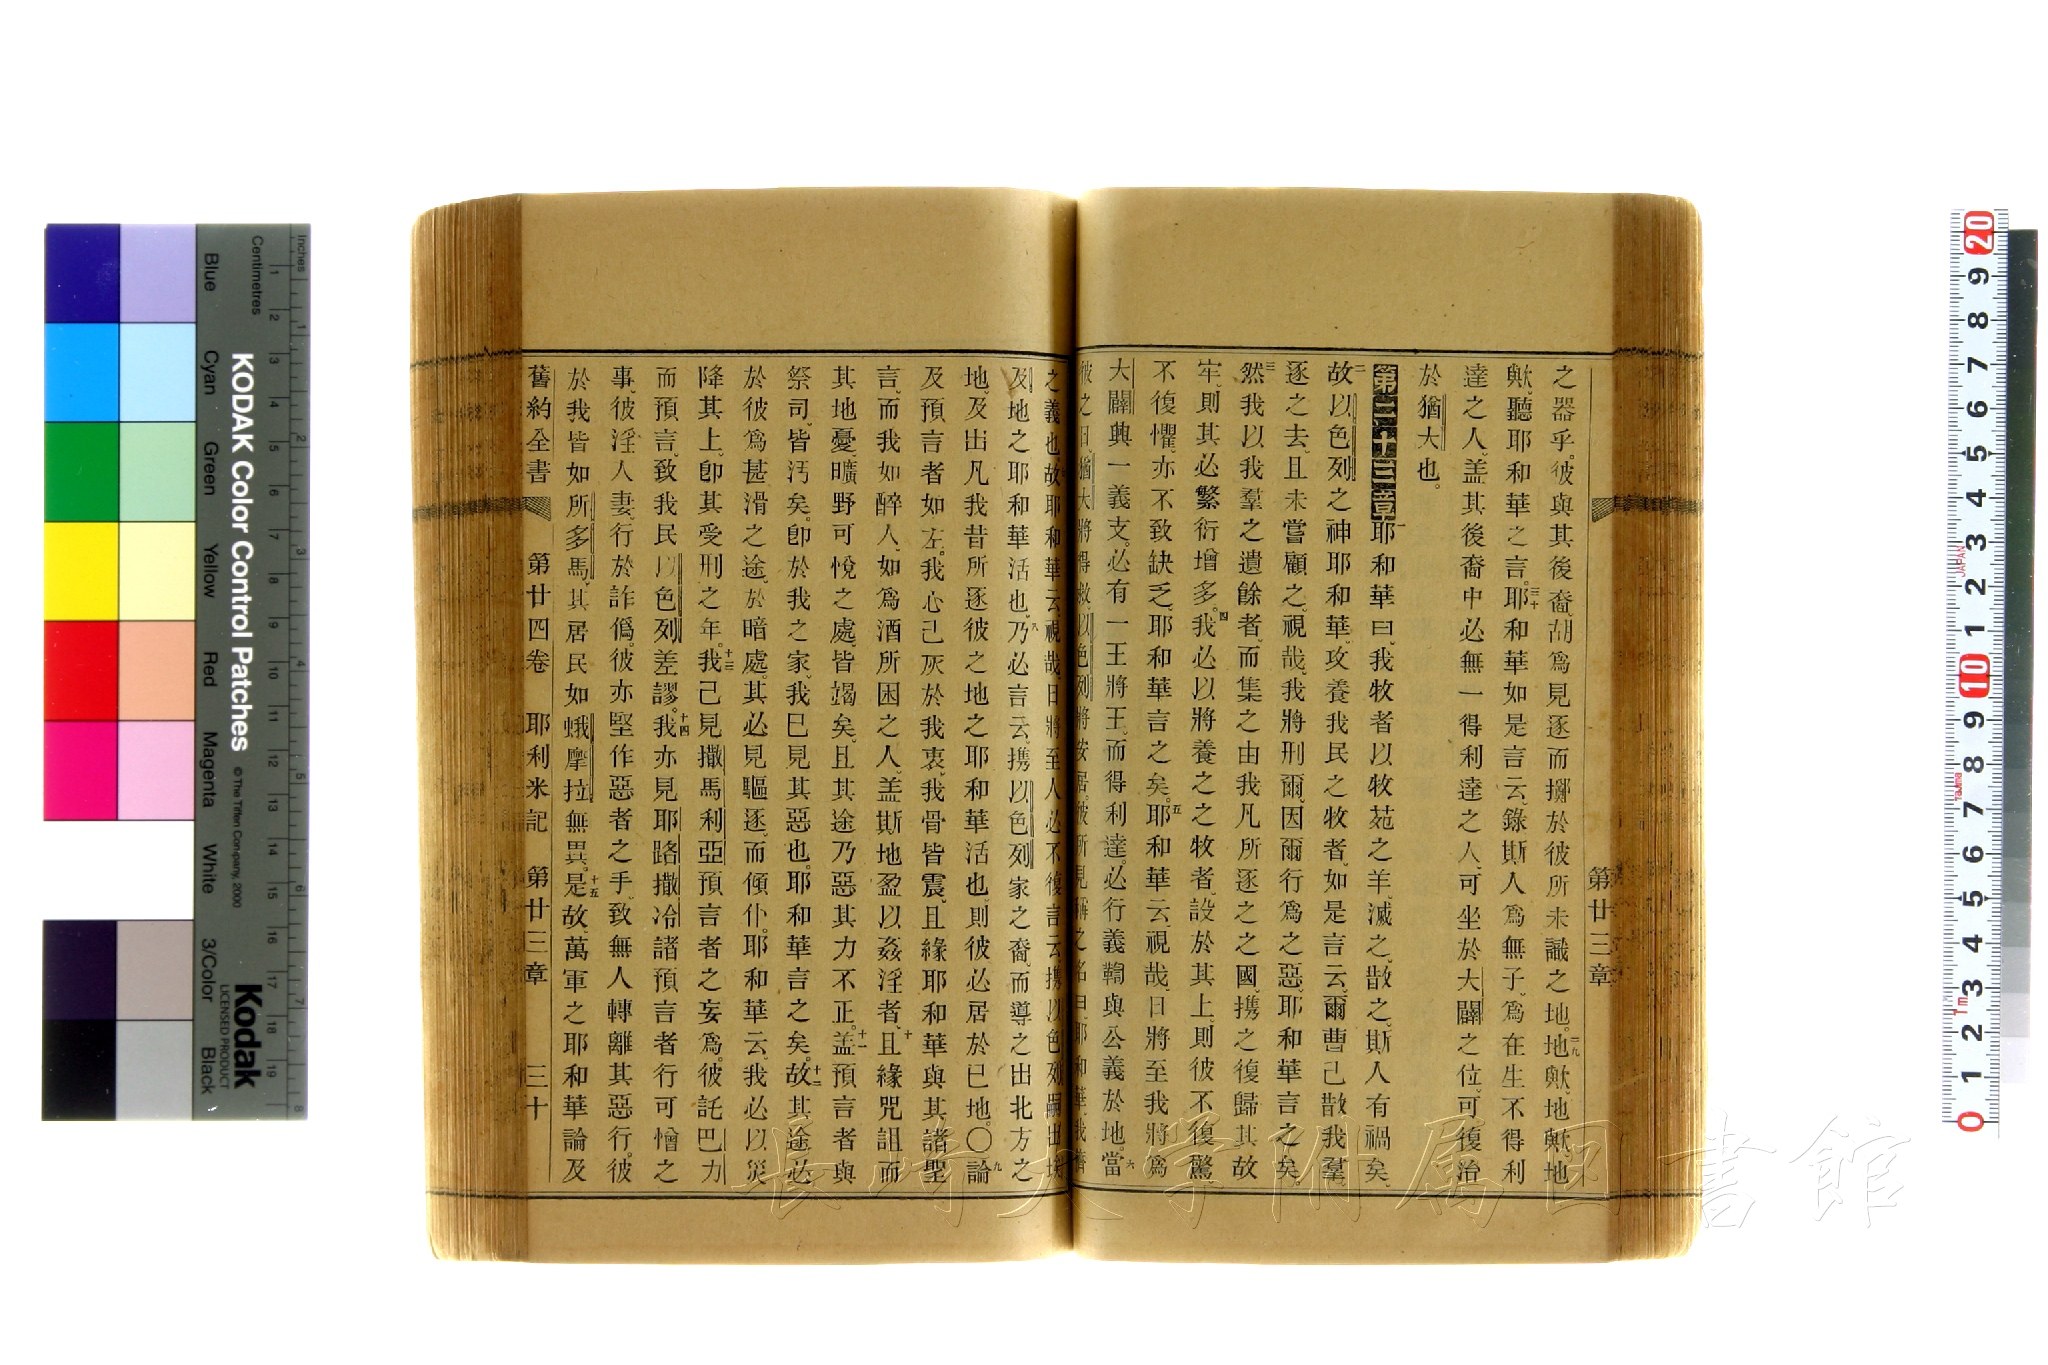 第廿三章
之器乎。彼與其後裔、胡爲見逐而擲於彼所未識之地。二九地歟、地歟、地
歟、聽耶和華之言。三十耶和華如是言云、錄斯人爲無子、爲在生不得利
達之人、盖其後裔中必無一得利達之人、可坐於大闢之位、可復治
於猶大也。
第二十三章一耶和華曰、我牧者以牧苑之羊、滅之、散之、斯人有禍矣。
二故以色列之神耶和華、攻養我民之牧者、如是言云、爾曹己散我羣、
逐之去、且未嘗顧之、視哉、我將刑爾、因爾行爲之惡、耶和華言之矣。
三然我以我羣之遺餘者、而集之由我凡所逐之之國、携之復歸其故
牢、則其必繁衍增多。四我必以將養之之牧者、設於其上、則彼不復驚、
不復懼、亦不致缺乏、耶和華言之矣。五耶和華云、視哉、日將至、我將爲
大闢興一義支。必有一王將王、而得利達。必行義鞫與公義於地。六當
彼之日、猶大將得救、以色列將安居。彼所見稱之名曰、耶和華我儕
之義也。故耶和華云、視哉、日將至、人必不復言云、携以色列嗣出埃
及地之耶和華活也。八乃必言云、携以色列家之裔、而導之出北方之
地、及出凡我昔所逐彼之地之耶和華活也、則彼必居於已地。〇九論
及預言者如左。我心己灰於我衷、我骨皆震、且緣耶和華與其諸聖
言、而我如醉人、如爲酒所困之人、盖斯地盈以姦淫者、十且緣咒詛而
其地憂、曠野可悅之處、皆竭矣、且其途乃惡、其力不正。十一盖預言者與
祭司、皆汚矣。卽於我之家、我巳見其惡也、耶和華言之矣。十二故其途必
於彼爲甚滑之途、於暗處。其必見驅逐、而傾仆。耶和華云、我必以災
降其上。卽其受刑之年。十三我己見撒馬利亞預言者之妄爲。彼託巴力
而預言、致我民以色列差謬。十四我亦見耶路撒冷諸預言者行可憎之
事、彼淫人妻、行於詐僞。彼亦堅作惡者之手、致無人轉離其惡行。彼
於我皆如所多馬、其居民如蛾摩拉無異。十五是故、萬軍之耶和華論及
舊約全書 第廿四卷 耶利米記 第廿三章 三十
長崎大学附属図書館
KODAK Color Control Patches
©The Tiffen Company, 2000
Kodak
LICENSED PRODUCT
Inches
Centimetres
Blue
Cyan
Green
Yellow
Red
Magenta
White
3/Color
Black
1 2 3 4 5 6 7 8 9 10 11 12 13 14 15 16 17 18 19
20 9 8 7 6 5 4 3 2 1 10 9 8 7 6 5 4 3 2 1 0
JAPAN